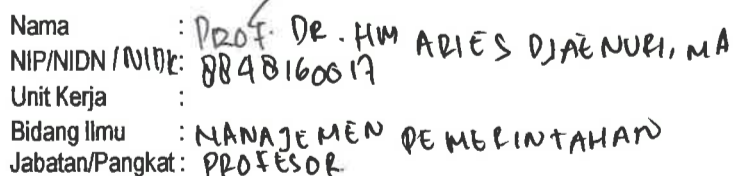 Nama : PROF. DR. HM ARIES DJAENURI, MA
NIP/NIDN/NIDK: 8848160017
Unit Kerja :
Bidang Ilmu : MANAJEMEN PEMERINTAHAN
Jabatan/Pangkat: PROFESOR